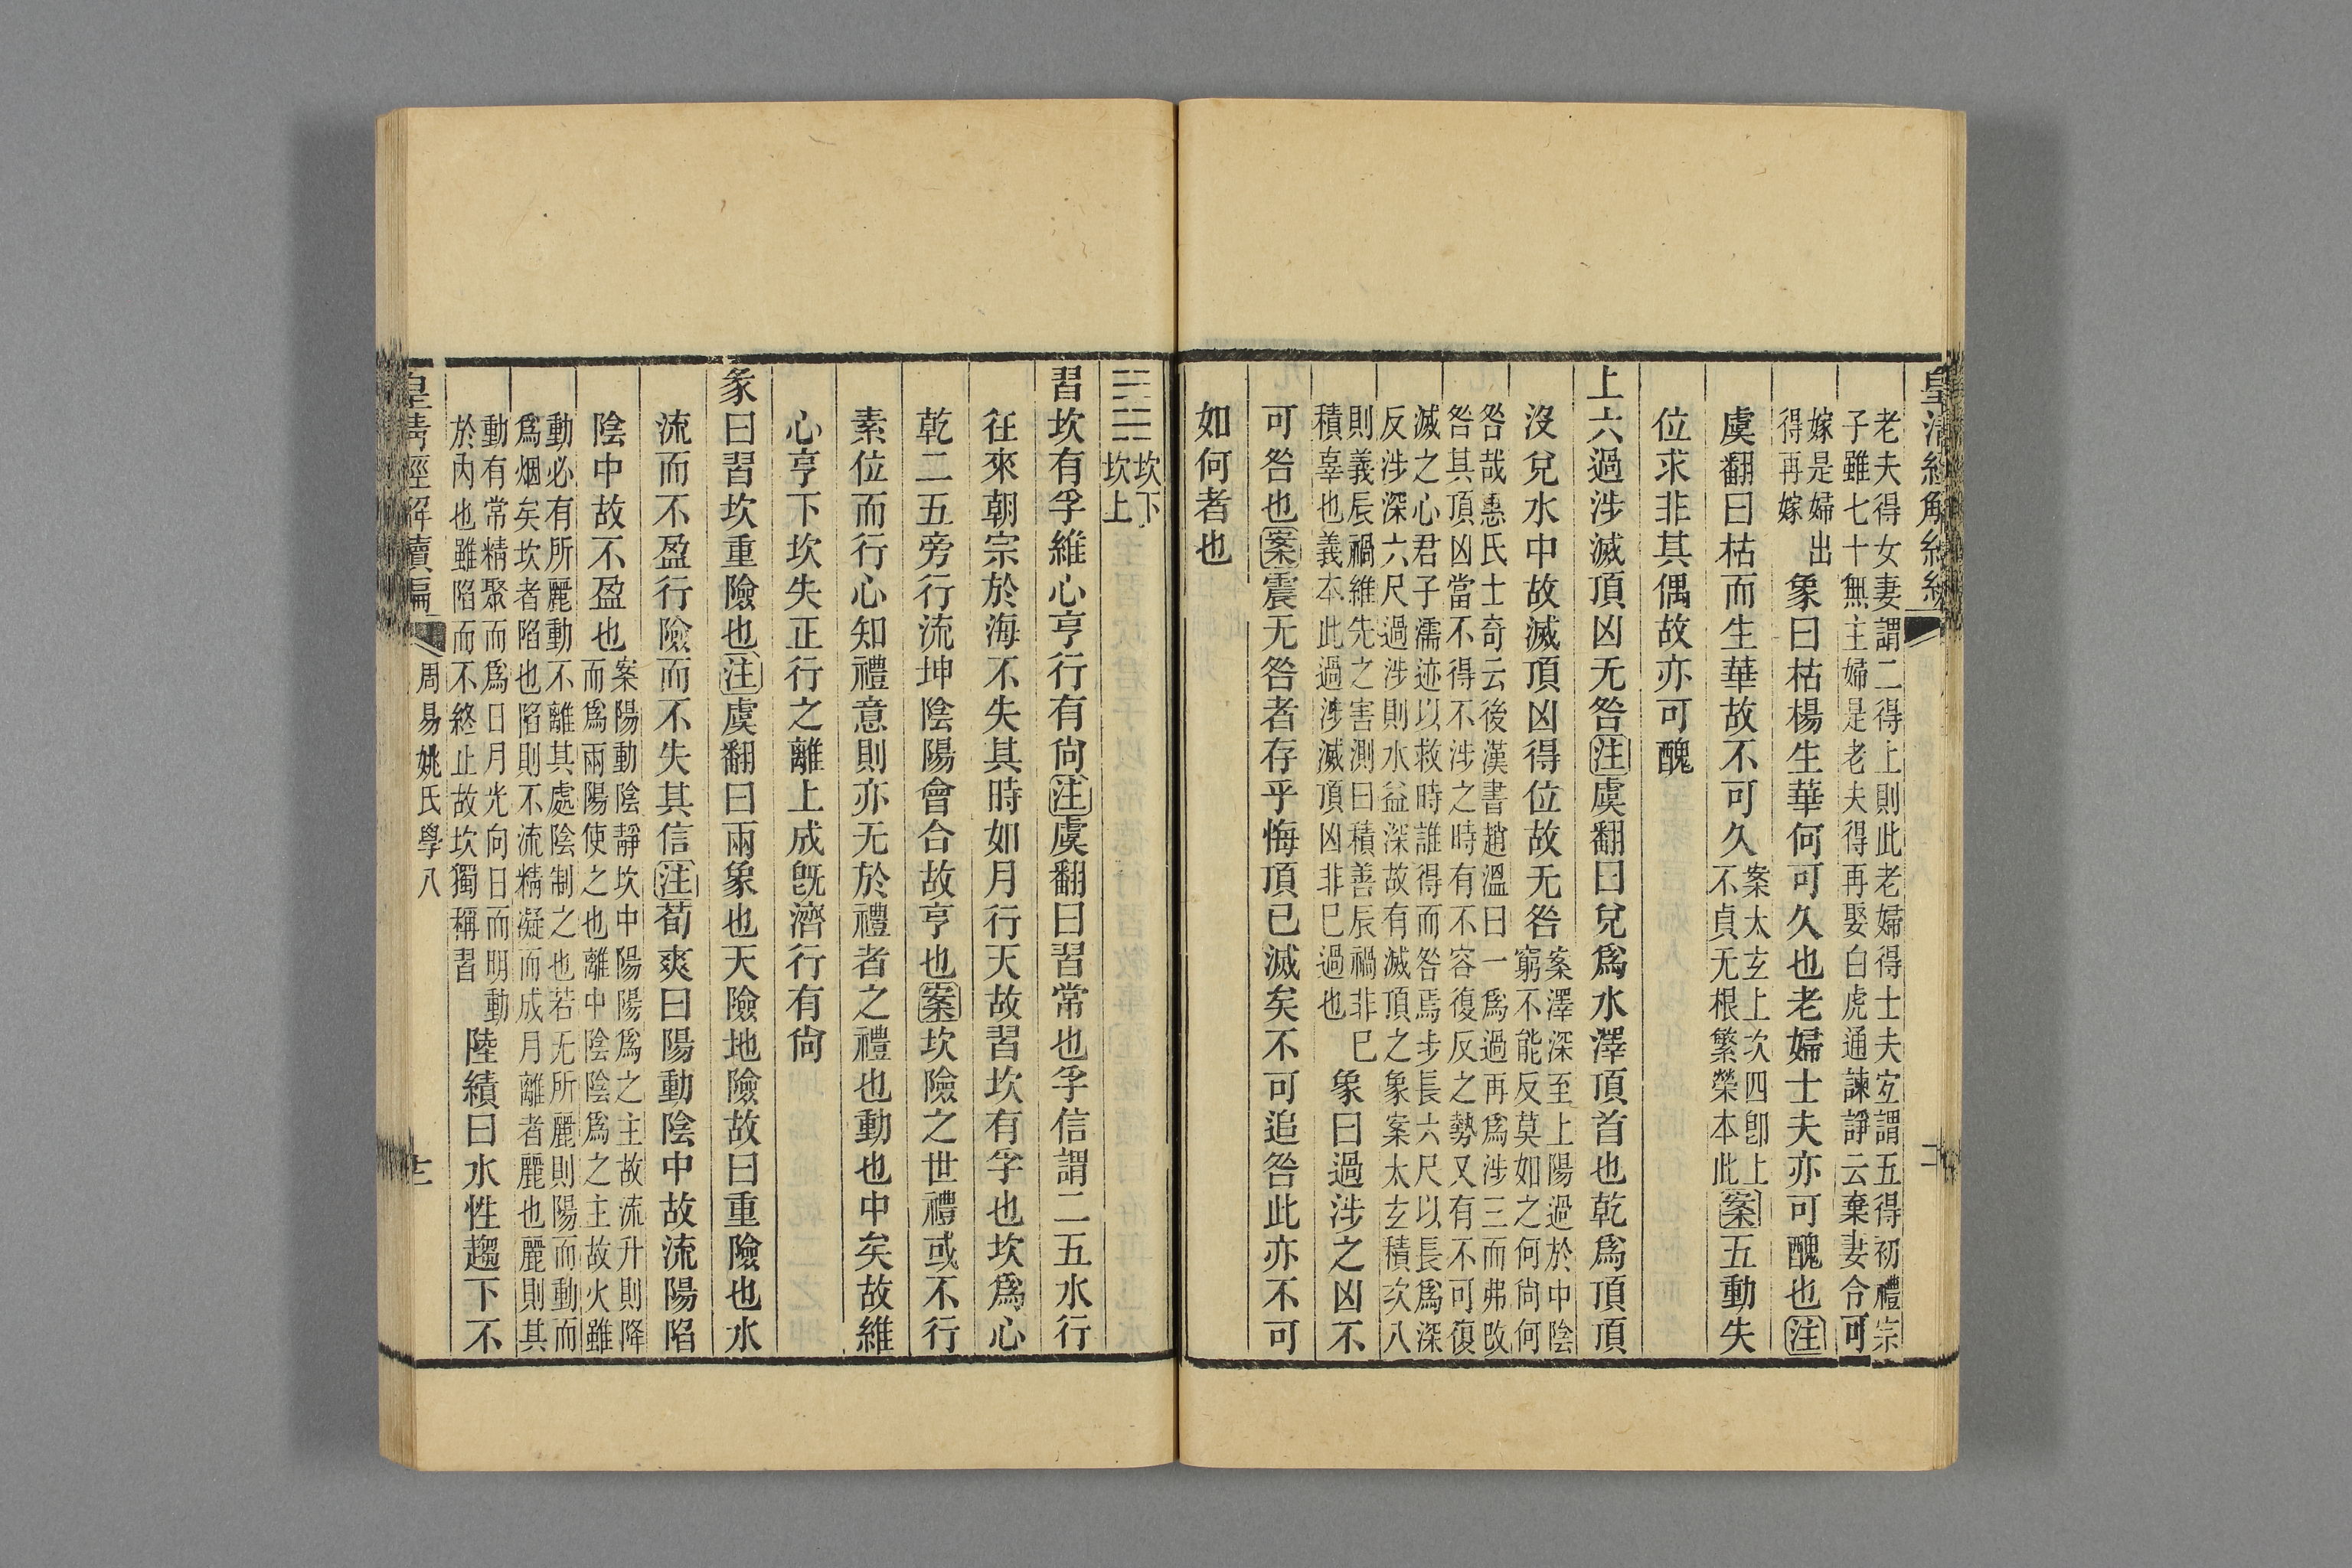 皇清經解續編
老夫得女妻謂二得上則此老婦得士夫宐謂五得初禮宗
子雖七十無主婦是老夫得再娶白虎通諫諍云棄妻令可
嫁是婦出
得再嫁
象曰枯楊生華何可久也老婦士夫亦可醜也注
虞翻曰枯而生華故不可久
案太玄上次四卽上
不貞无根繁榮本此
案五動失
位求非其偶故亦可醜
上六過涉滅頂凶无咎注虞翻曰兌爲水澤頂首也乾爲頂頂
沒兌水中故滅頂凶得位故无咎
案澤深至上陽過於中陰
窮不能反莫如之何尚何
咎哉惠氏士奇云後漢書趙溫曰一爲過再爲涉三而弗改
咎其頂凶當不得不涉之時有不容復反之勢又有不可復
滅之心君子濡迹以救時誰得而咎焉步長六尺以長爲深
反涉深六尺過涉則水益深故有滅頂之象案太玄積次八
則義辰禍維先之害測曰積善辰禍非巳
積辜也義本此過涉滅頂凶非巳過也
象曰過涉之凶不
可咎也案震无咎者存乎悔頂已滅矣不可追咎此亦不可
如何者也
坎下
坎上
習坎有孚維心亨行有尙注虞翻曰習常也孚信謂二五水行
往來朝宗於海不失其時如月行天故習坎有孚也坎爲心
乾二五旁行流坤陰陽會合故亨也案坎險之世禮或不行
素位而行心知禮意則亦无於禮者之禮也動也中矣故維
心亨下坎失正行之離上成旣濟行有尙
彖曰習坎重險也注虞翻曰兩象也天險地險故曰重險也水
流而不盈行險而不失其信注荀爽曰陽動陰中故流陽陷
陰中故不盈也
案陽動陰靜坎中陽陽爲之主故流升則降
而爲兩陽使之也離中陰陰爲之主故火雖
動必有所麗動不離其處陰制之也若无所麗則陽而動而
爲烟矣坎者陷也陷則不流精凝而成月離者麗也麗則其
動有常精聚而爲日月光向日而明動
於內也雖陷而不終止故坎獨稱習
陸績曰水性趨下不
皇清經解續編
周易姚氏學八